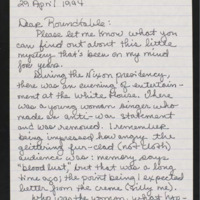 29 April 1994
Dear Roundtable:
Please let me know what you
can find out about this little
mystery that's been on my mind
for years.
During the Nixon presidency,
there was an evening of entertain-
ment at the White House. There
was a young woman singer who
made an anti-war statement
and was removed. I remember
being impressed how angry the
glittering fur-clad (not cloth)
audience was; memory says
"blood lust", but that was a long
time ago; the point being I expected
better from the creme (silly me).
Who was the woman, what